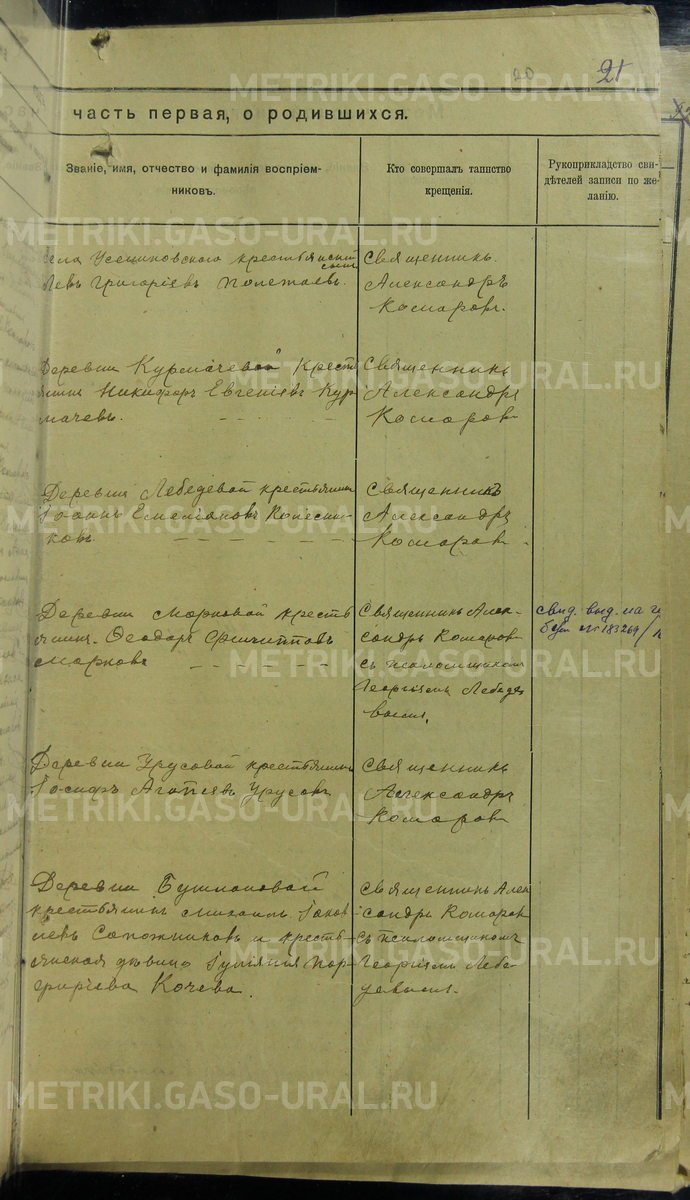 20
21
часть первая, о родившихся.
Званіе, имя, отчество и фамилія воспріем-
никовъ.
Кто совершалъ таинство
крещенія.
Рукоприкладство сви-
дѣтелей записи по же-
ланію.
села Усениновскаго крестьянскій
сынъ
Левъ Григоріевъ Полежаевъ.
Священникъ
Александръ
Комаровъ.
Деревни Курмачевой крест
янинъ Никифоръ Евгеніевъ Кур
мачевъ.
Священникъ
Александръ
Комаровъ
Деревни Лебедевой крестьянинъ
Іоаннъ Емеліановъ Колесни-
ковъ.
Священникъ
Александръ
Комаровъ
Деревни Морковой кресть
янинъ Ѳеодоръ Филипповъ
Морковъ
Священникъ Алек-
сандръ Комаровъ
съ псаломщикомъ
Георгіемъ Лебеде
вымъ.
свид. выд. на г
бум № 183264/
Деревни Урусовой крестьянинъ
Іосифъ Агапіевъ Урусовъ
Священникъ
Александръ
Комаровъ
Деревни Бушлановой
крестьянинъ Михаилъ Іаков
левъ Сапожниковъ и кресть-
янская дѣвица Іуліянія Пор-
фиріева Кочева.
Священникъ Алек
сандръ Комаровъ
съ псаломщикомъ
Георгіемъ Лебе
девымъ.
METRIKI.GASO-URAL.RU
METRIKI.GASO-URAL.RU
METRIKI.GASO-URAL.RU
METRIKI.GASO-URAL.RU
METRIKI.GASO-URAL.RU
METRIKI.GASO-URAL.RU
METRIKI.GASO-URAL.RU
METRIKI.GASO-URAL.RU